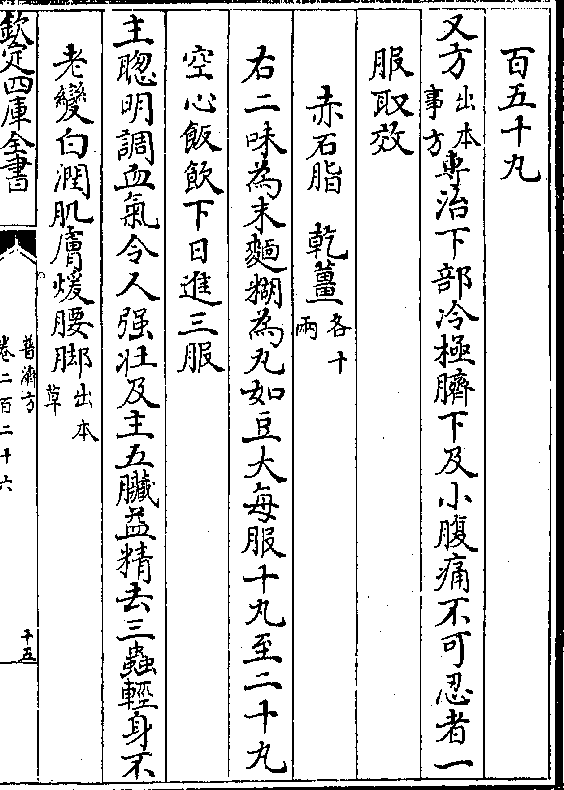 百五十九
又方出本事方專治下部冷極臍下及小腹痛不可忍者一
服取效
赤石脂　乾薑各十兩
右二味為末麵糊為丸如豆大每服十丸至二十丸
空心飯飲下日進三服
主聰明調血氣令人强壯及主五臟益精去三蟲輕身不
老變白潤肌膚煖腰脚出本草
欽定四庫全書
普濟方
卷二百二十六
十五